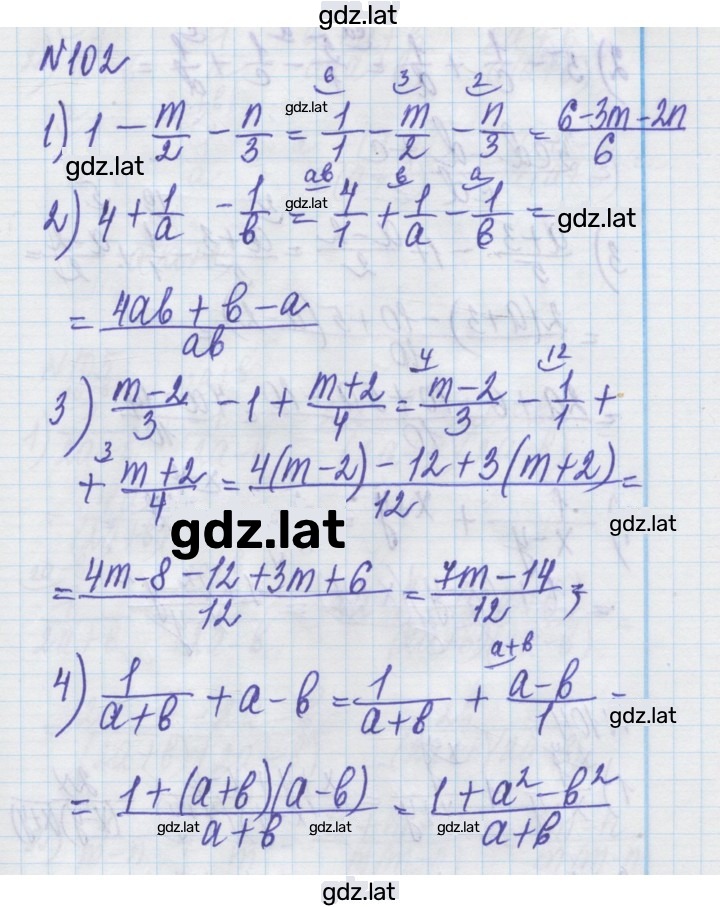 gdz.lat
№102
1) 1 - m/2 - n/3 = 1/1 - m/2 - n/3 = (6-3m-2n)/6
6 3 2
gdz.lat
gdz.lat
2) 4 + 1/a - 1/b = 4/1 + 1/a - 1/b =
ab b a
gdz.lat
gdz.lat
= (4ab + b - a)/ab
3) (m-2)/3 - 1 + (m+2)/4 = (m-2)/3 - 1/1 +
4 12
+ (m+2)/4 = (4(m-2) - 12 + 3(m+2))/12 =
3
gdz.lat
gdz.lat
= (4m-8-12+3m+6)/12 = (7m-14)/12;
4) 1/(a+b) + a-b = 1/(a+b) + (a-b)/1 =
a+b
gdz.lat
= (1+(a+b)(a-b))/(a+b) = (1+a²-b²)/(a+b)
gdz.lat gdz.lat gdz.lat
gdz.lat